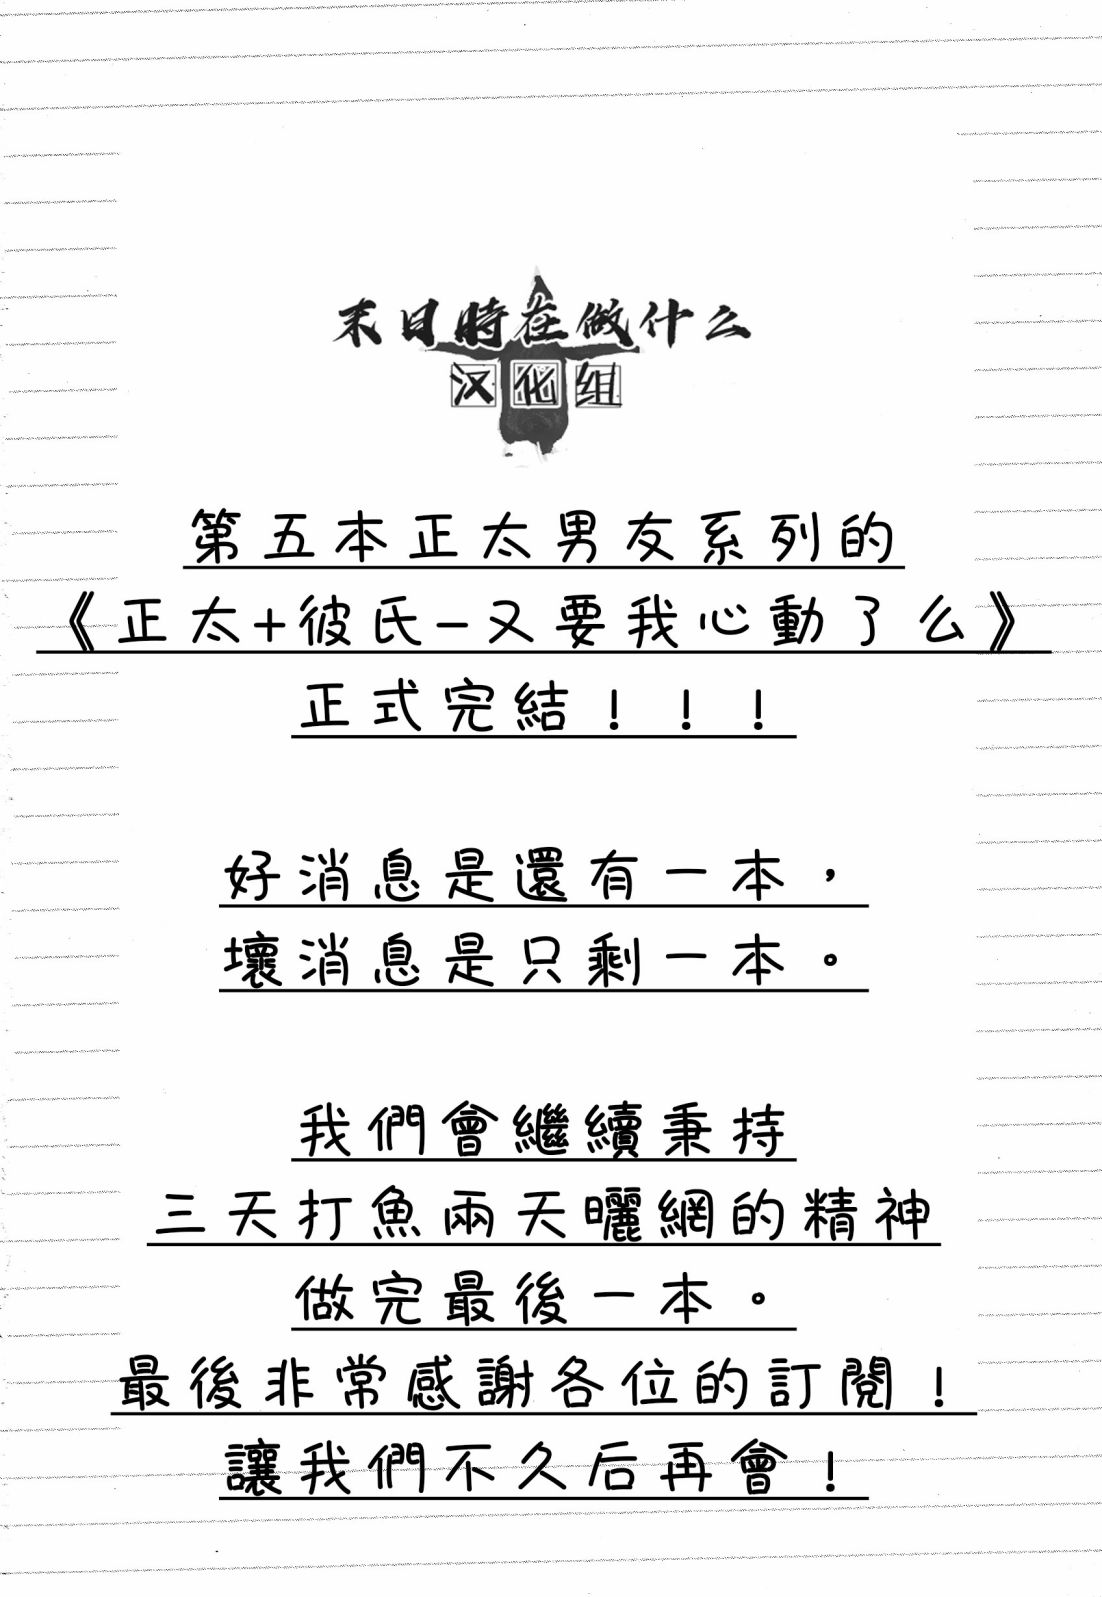 末日時在做什么
汉化组
第五本正太男友系列的
《正太+彼氏-又要我心動了么》
正式完結!!!
好消息是還有一本，
壞消息是只剩一本。
我們會繼續秉持
三天打魚兩天曬網的精神
做完最後一本。
最後非常感謝各位的訂閱!
讓我們不久后再會!